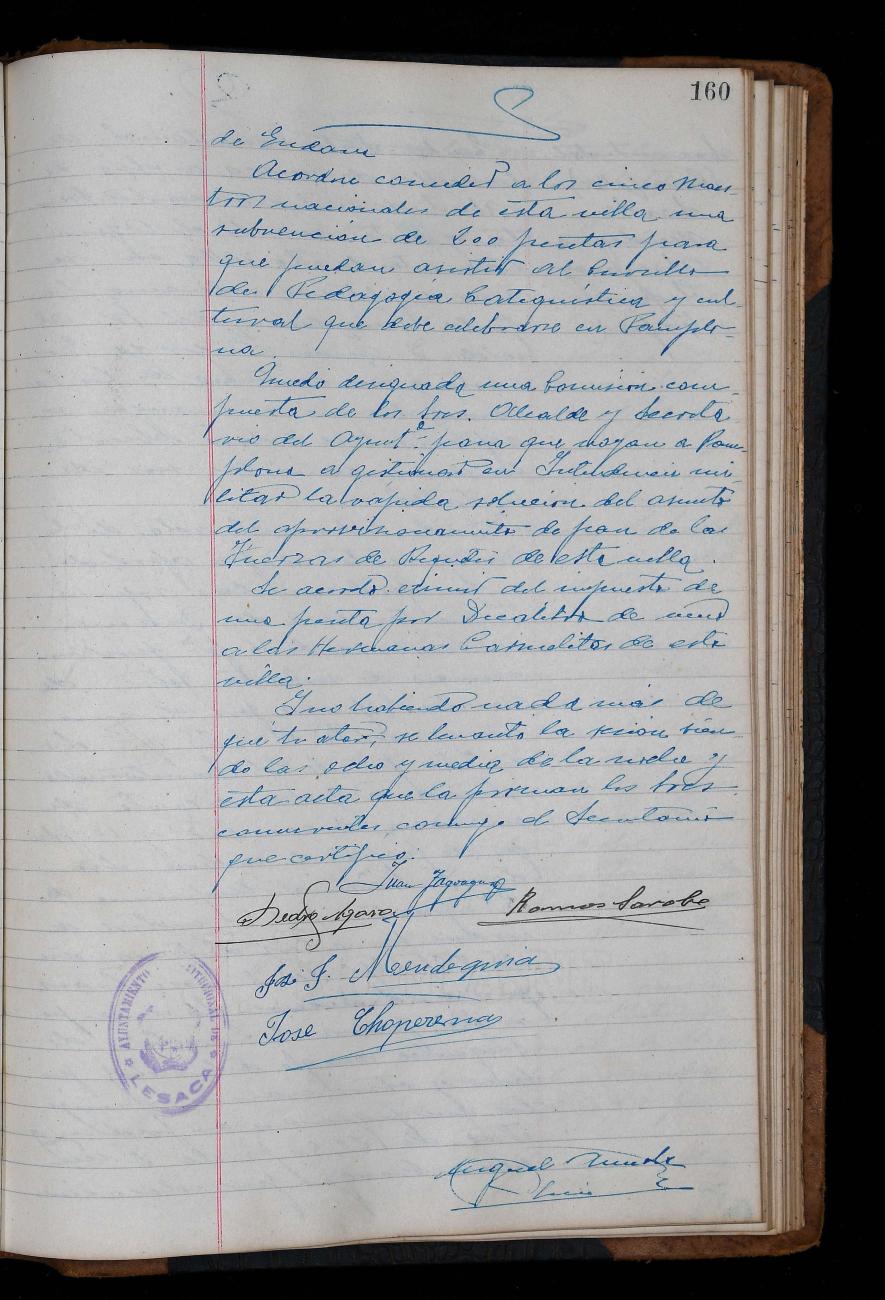 160
de Endara
Acordose conceder a los cinco Maes-
tros nacionales de esta villa una
subvención de 200 pesetas para
que puedan asistir al Cursillo
de Pedagogía Catequística y cul-
tural que debe celebrarse en Pamplo-
na.
Quedo designada una Comisión com-
puesta de los Sres. Alcalde y Secreta
rio del Ayuntº. para que vayan a Pam-
plona a gestionar en Intendencia mi-
litar la rápida solucion del asunto
del aprovisionamiento de pan de las
Fuerzas de Requetés de esta villa.
Se acordó eximir del impuesto de
una peseta por Decalitro de vino
a las Hermanas Carmelitas de esta
villa.
Y no habiendo nada más de
que tratar, se levantó la sesion sien-
do las ocho y media de la noche y
esta acta que la firman los Sres.
concurrentes, conmigo el Secretario
que certifico.
Juan
Pedro Ramos Sarobe
José F. Mendeguia
Jose Choperena
AYUNTAMIENTO
LESACA
Miguel